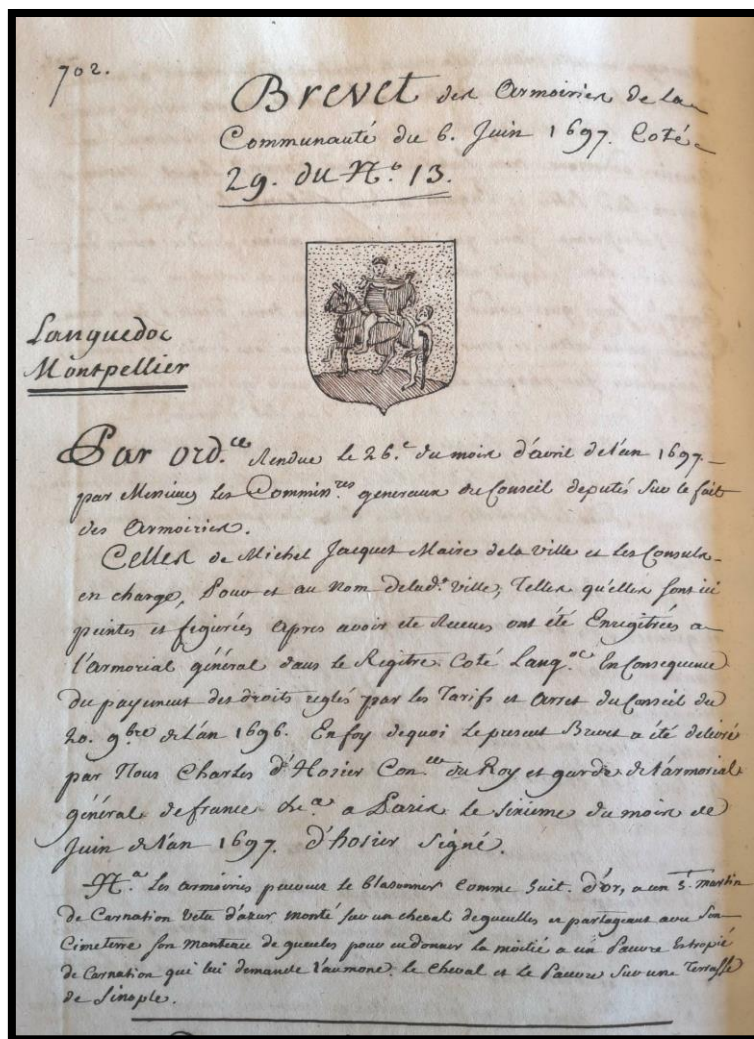 702.
Brevet des Armoiries de la
Communauté du 6. Juin 1697. Coté
29. du N.º 13.
Languedoc
Montpellier
Par ord.ce Rendue le 26.e du mois d'avril de l'an 1697.
par Messieurs les Commiss.res generaux du Conseil deputés Sur le fait
des Armoiries.
Celles de Michel Jacques Maire de la Ville et les Consuls
en charge, Pour et au Nom de lad.e Ville, Telles qu'elles sont ici
peintes et figurées apres avoir eté Receues ont été Enregitrées a
l'armorial général dans le Regitre Coté Lang.oc En Consequence
du payement des droits reglés par les Tarifs et Arret du Conseil du
20. 9.bre de l'an 1696. En foy dequoi le present Brevet a été delivré
par Nous Charles d'Hosier Con.er du Roy et garde de l'armorial
général de france &c.a a Paris le Sixieme du mois de
Juin de l'an 1697. d'hosier Signé.
N.a Les armoiries peuvent se blasonner Comme Suit. D'or, a un S.t martin
de Carnation Vetu d'azur monté sur un cheval de gueulles et partageant avec Son
Cimeterre son manteau de gueules pour en donner la moitié a un Pauvre Estropié
de Carnation qui lui demande l'aumone. le Cheval et le Pauvre Sur une Terrasse
de Sinople.